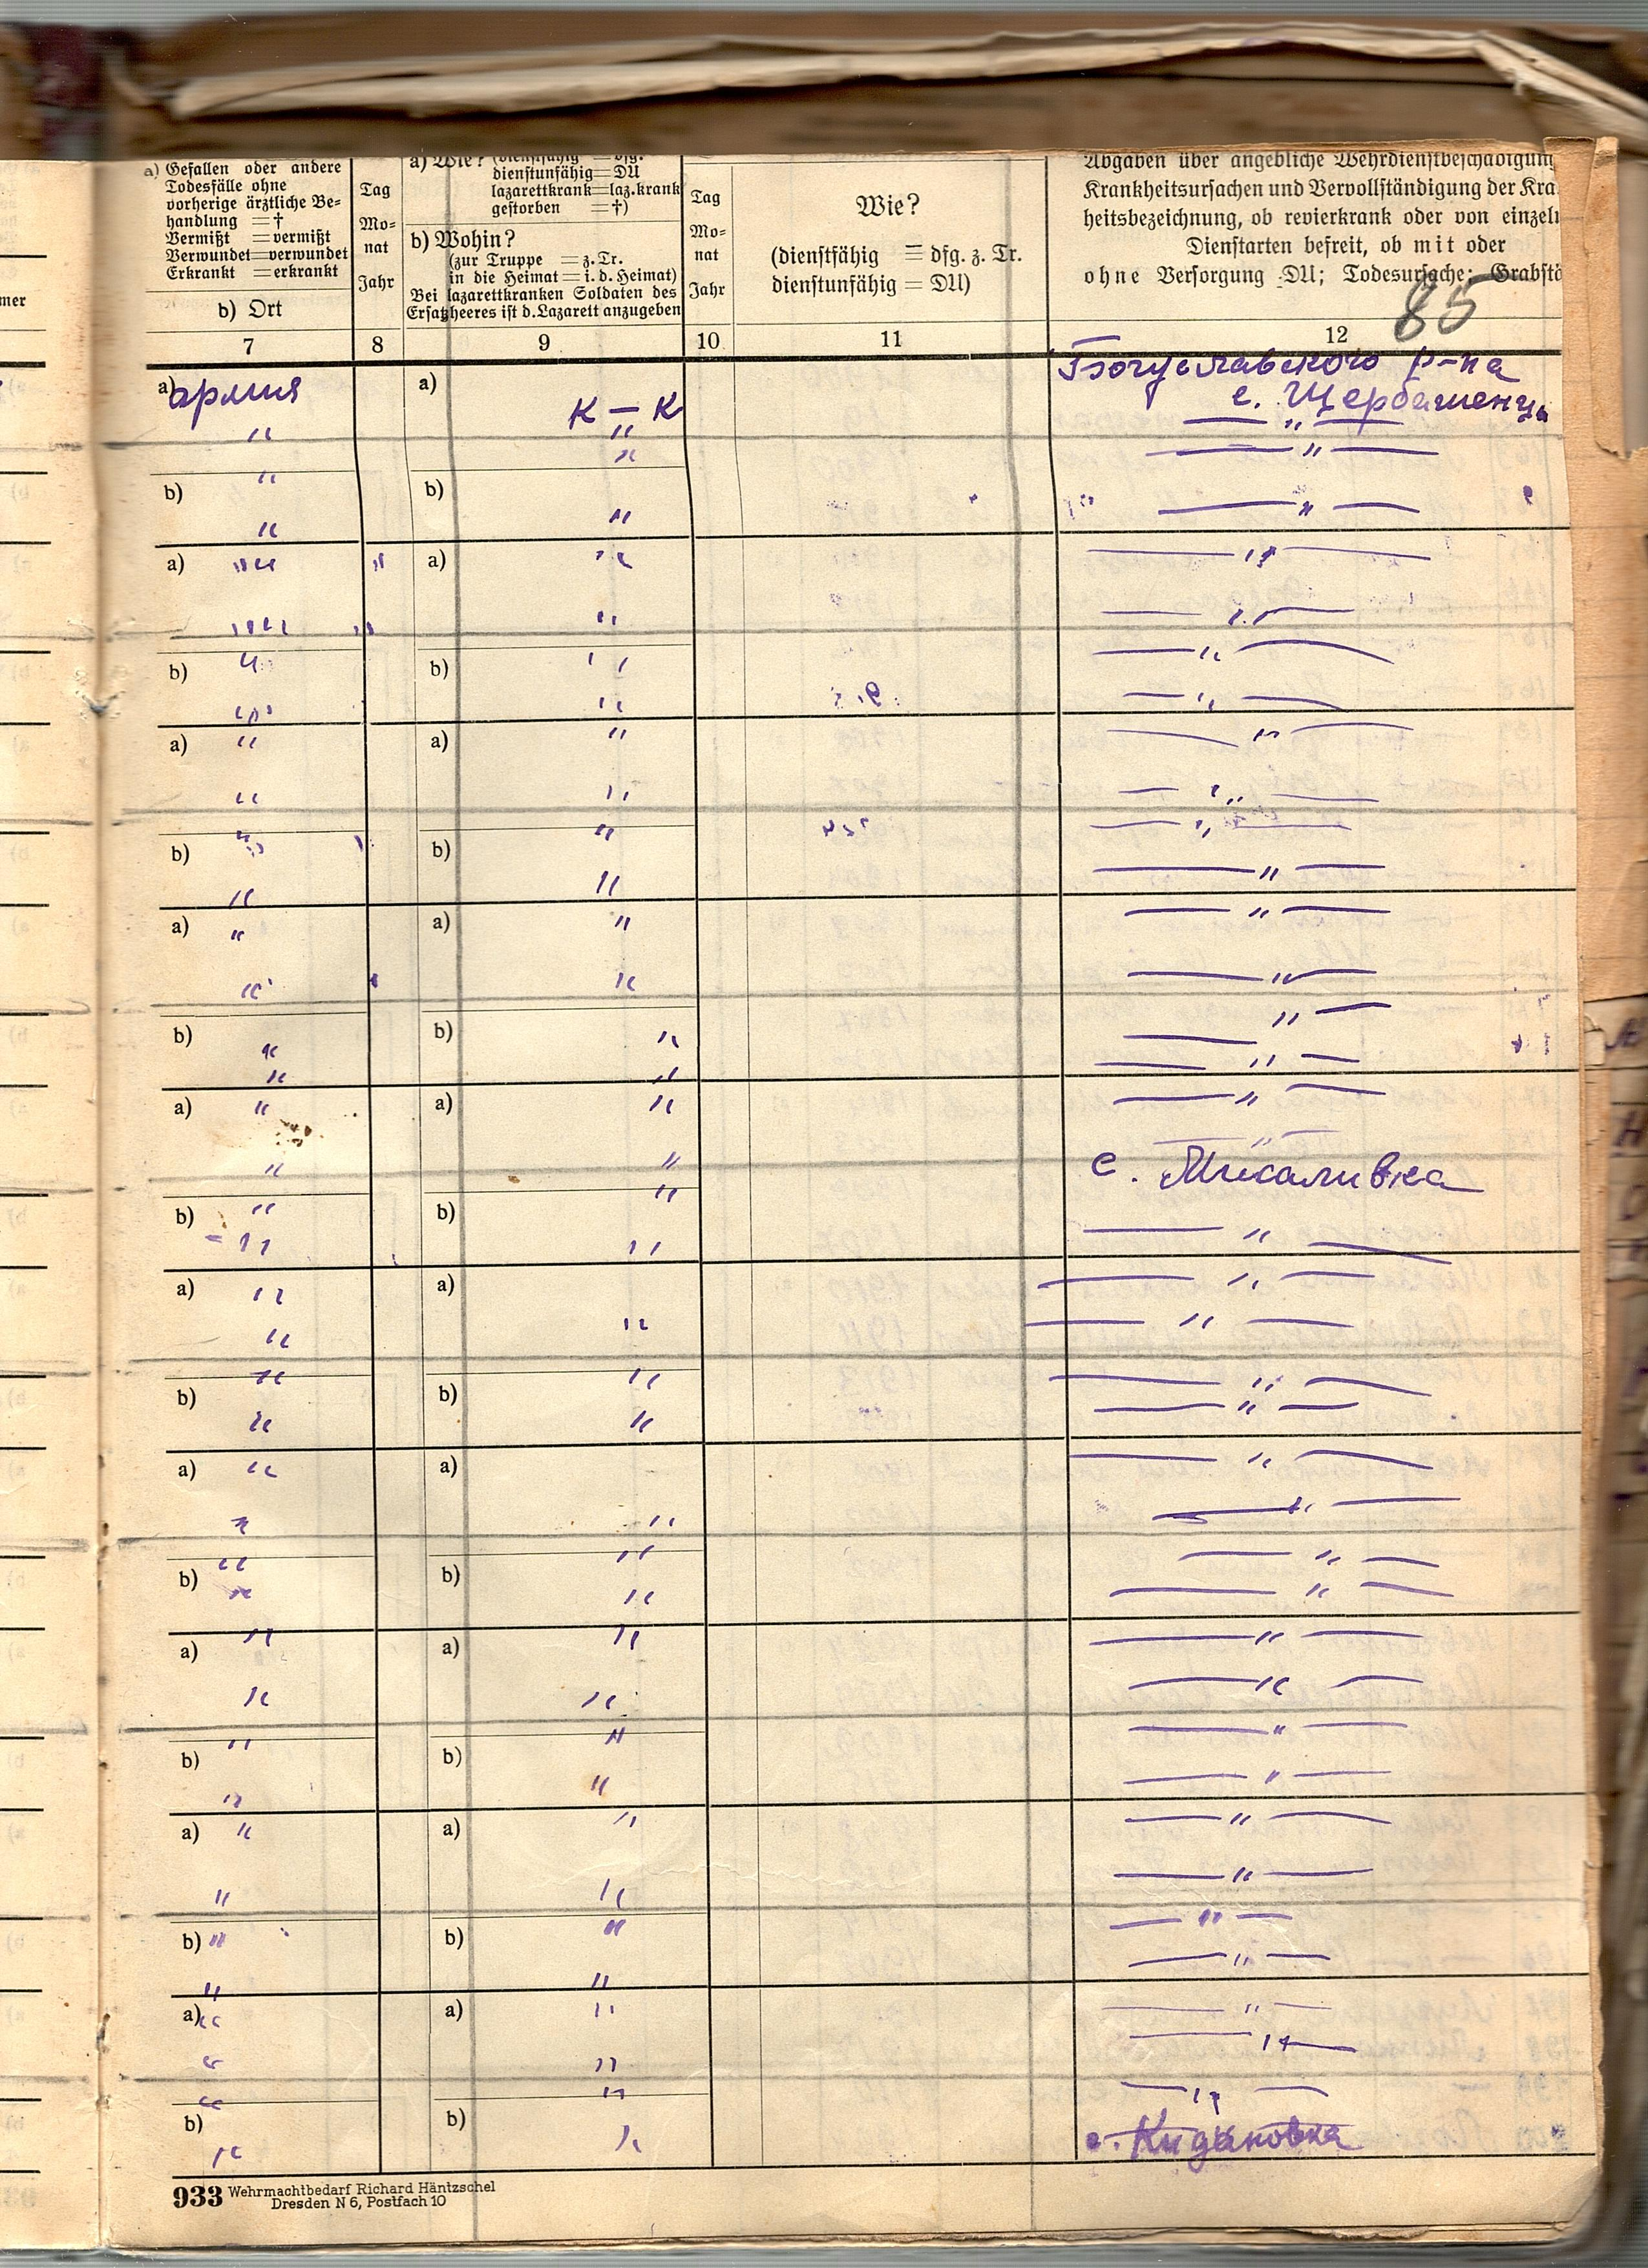 a) Gefallen oder andere
Todesfälle ohne
vorherige ärztliche Be-
handlung = †
Vermißt = vermißt
Verwundet = verwundet
Erkrankt = erkrankt
b) Ort
7
Tag
Mo-
nat
Jahr
8
a) Wie? (dienstfähig = dfg.
dienstunfähig = DU
lazarettkrank = laz.krank
gestorben = †)
b) Wohin?
(zur Truppe = z. Tr.
in die Heimat = i. d. Heimat)
Bei lazarettkranken Soldaten des
Ersatzheeres ist d. Lazarett anzugeben
9
Tag
Mo-
nat
Jahr
10
Wie?
(dienstfähig = dfg. z. Tr.
dienstunfähig = DU)
11
Abgaben über angebliche Wehrdienstbeschädigung
Krankheitsursachen und Vervollständigung der Kra
heitsbezeichnung, ob revierkrank oder von einzeln
Dienstarten befreit, ob mit oder
ohne Versorgung DU; Todesursache; Grabstä
85
12
mer
a) армия
a)
К — К
Богуславского р-на
с. Щербашенцы
" " — " —
" — " —
"
b) b)
" " — " —
a) " " a) " — " —
" " " — " —
b) " b) " — " —
" " — " —
a) " a) " — " —
" " — " —
b) " b) " — " —
" " — " —
a) " a) " — " —
" " — " —
b) b) — " —
" " — " —
" "
a) " a) " — " —
— " —
" " с. Мисаливка
b) " b) "
" " — " —
a) " a) — " —
" " — " —
b) " b) " — " —
" " — " —
a) " a) — " —
" " — " —
b) " b) " — " —
" " — " —
a) " a) " — " —
" " — " —
b) " b) " — " —
" " — " —
a) " a) " — " —
" " — " —
b) " b) " — " —
" " — " —
a) " a) " — " —
" " — " —
b) " b) " — " —
" " с. Кидановка
933 Wehrmachtbedarf Richard Häntzschel
Dresden N 6, Postfach 10